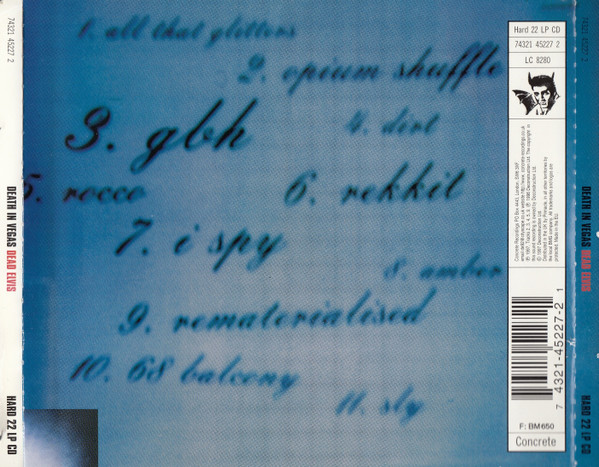 74321 45227 2
DEATH IN VEGAS DEAD ELVIS
HARD 22 LP CD
1. all that glitters
2. opium shuffle
3. gbh
4. dirt
5. rocco
6. rekkit
7. i spy
8. amber
9. rematerialised
10. 68 balcony
11. sly
Hard 22 LP CD
74321 45227 2
LC 8280
7 4321-45227-2 1
F: BM 650
Concrete
74321 45227 2
DEATH IN VEGAS DEAD ELVIS
HARD 22 LP CD